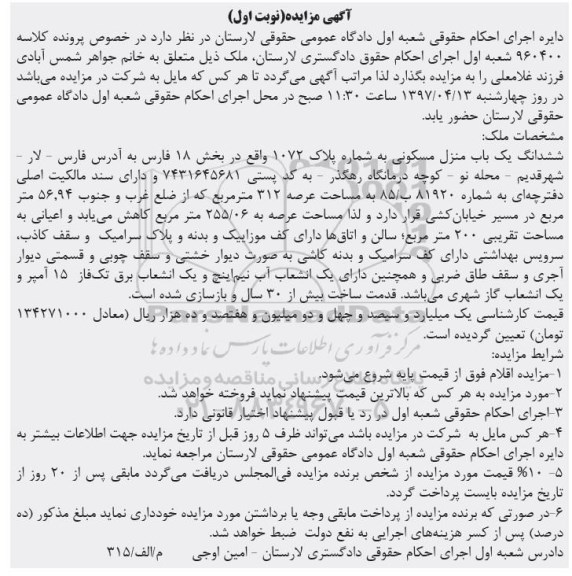 آگهی مزایده(نوبت اول)
دایره اجرای احکام حقوقی شعبه اول دادگاه عمومی حقوقی لارستان در نظر دارد در خصوص پرونده کلاسه
۹۶۰۴۰۰ شعبه اول اجرای احکام حقوق دادگستری لارستان، ملک ذیل متعلق به خانم جواهر شمس آبادی
فرزند غلامعلی را به مزایده بگذارد لذا مراتب آگهی می‌گردد تا هر کس که مایل به شرکت در مزایده می‌باشد
در روز چهارشنبه ۱۳۹۷/۰۴/۱۳ ساعت ۱۱:۳۰ صبح در محل اجرای احکام حقوقی شعبه اول دادگاه عمومی
حقوقی لارستان حضور یابد.
مشخصات ملک:
ششدانگ یک باب منزل مسکونی به شماره پلاک ۱۰۷۲ واقع در بخش ۱۸ فارس به آدرس فارس - لار -
شهرقدیم - محله نو - کوچه درمانگاه رهگذر - به کد پستی ۷۴۳۱۶۴۵۶۸۱ و دارای سند مالکیت اصلی
دفترچه‌ای به شماره ۸۱۹۲۰ ب/۸۵ به مساحت عرصه ۳۱۲ مترمربع که از ضلع غرب و جنوب ۵۶,۹۴ متر
مربع در مسیر خیابان‌کشی قرار دارد و لذا مساحت عرصه به ۲۵۵/۰۶ متر مربع کاهش می‌یابد و اعیانی به
مساحت تقریبی ۲۰۰ متر مربع؛ سالن و اتاق‌ها دارای کف موزاییک و بدنه و پلاک سرامیک و سقف کاذب،
سرویس بهداشتی دارای کف سرامیک و بدنه کاشی به صورت دیوار خشتی و سقف چوبی و قسمتی دیوار
آجری و سقف طاق ضربی و همچنین دارای یک انشعاب آب نیم‌اینچ و یک انشعاب برق تک‌فاز ۱۵ آمپر و
یک انشعاب گاز شهری می‌باشد. قدمت ساخت بیش از ۳۰ سال و بازسازی شده است.
قیمت کارشناسی یک میلیارد و سیصد و چهل و دو میلیون و هفتصد و ده هزار ریال (معادل ۱۳۴۲۷۱۰۰۰
تومان) تعیین گردیده است.
شرایط مزایده:
۱-مزایده اقلام فوق از قیمت پایه شروع می‌شود.
۲-مورد مزایده به هر کس که بالاترین قیمت پیشنهاد نماید فروخته خواهد شد.
۳-اجرای احکام حقوقی شعبه اول در رد یا قبول پیشنهاد اختیار قانونی دارد.
۴-هر کس مایل به شرکت در مزایده باشد می‌تواند ظرف ۵ روز قبل از تاریخ مزایده جهت اطلاعات بیشتر به
دایره اجرای احکام حقوقی شعبه اول دادگاه عمومی حقوقی لارستان مراجعه نماید.
۵- ۱۰% قیمت مورد مزایده از شخص برنده مزایده فی‌المجلس دریافت می‌گردد مابقی پس از ۲۰ روز از
تاریخ مزایده بایست پرداخت گردد.
۶-در صورتی که برنده مزایده از پرداخت مابقی وجه یا برداشتن مورد مزایده خودداری نماید مبلغ مذکور (ده
درصد) پس از کسر هزینه‌های اجرایی به نفع دولت ضبط خواهد شد.
دادرس شعبه اول اجرای احکام حقوقی دادگستری لارستان - امین اوجی م/الف/۳۱۵